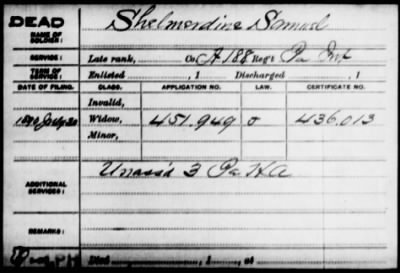 DEAD Shelmerdine Samuel
NAME OF SOLDIER:
SERVICE: Late rank, Co A 188 Reg't Pa Inf
TERM OF SERVICE: Enlisted , 1 Discharged , 1
DATE OF FILING. CLASS. APPLICATION NO. LAW. CERTIFICATE NO.
Invalid,
1890 July 20 Widow, 451.949 436.013
Minor,
ADDITIONAL SERVICES: Unass'd 3 Pa H A
REMARKS:
Died , 1 , at